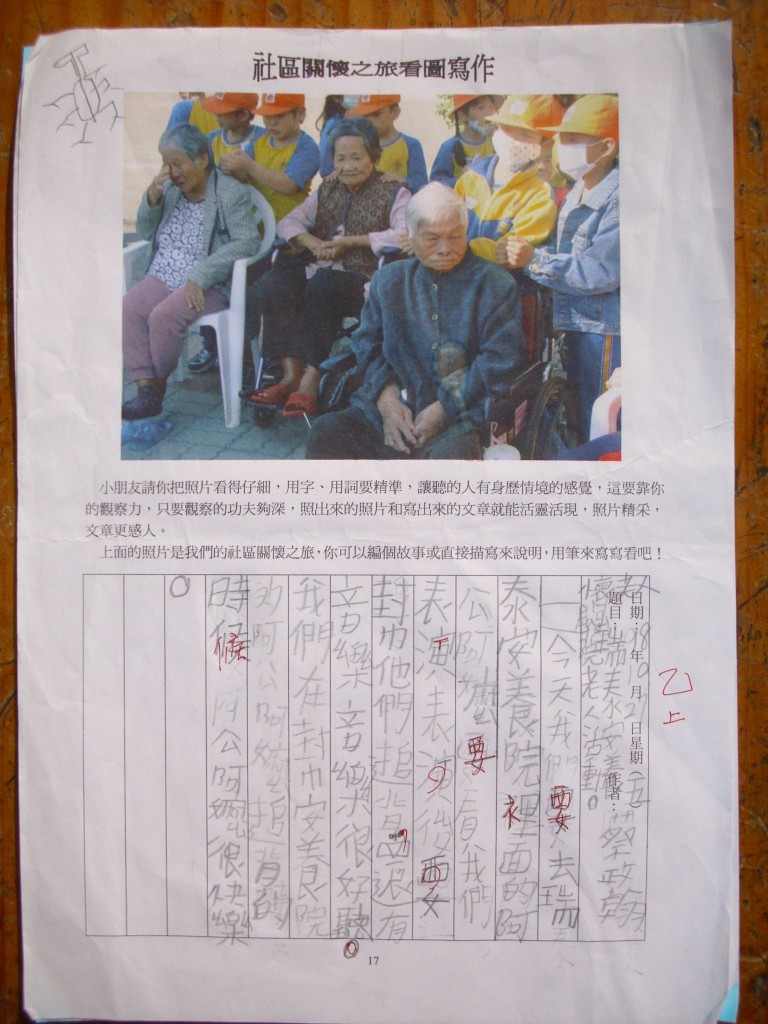 社區關懷之旅看圖寫作
小朋友請你把照片看得仔細，用字、用詞要精準，讓聽的人有身歷情境的感覺，這要靠你
的觀察力，只要觀察的功夫夠深，照出來的照片和寫出來的文章就能活靈活現，照片精采，
文章更感人。
上面的照片是我們的社區關懷之旅，你可以編個故事或直接描寫來說明，用筆來寫寫看吧！
日期：98年10月2日星期（五）
題目： 作者：蔡政翰
老人活動。
今天我們要去瑞
泰安養院裡面的阿
公阿嬤要看我們
表演，表演後要
封巾他們搥背，還有
音樂，音樂很好聽。
我們在封巾安養院
的阿公阿嬤搥背的
時候阿公阿嬤很快樂
。
乙上
要
要
候
17